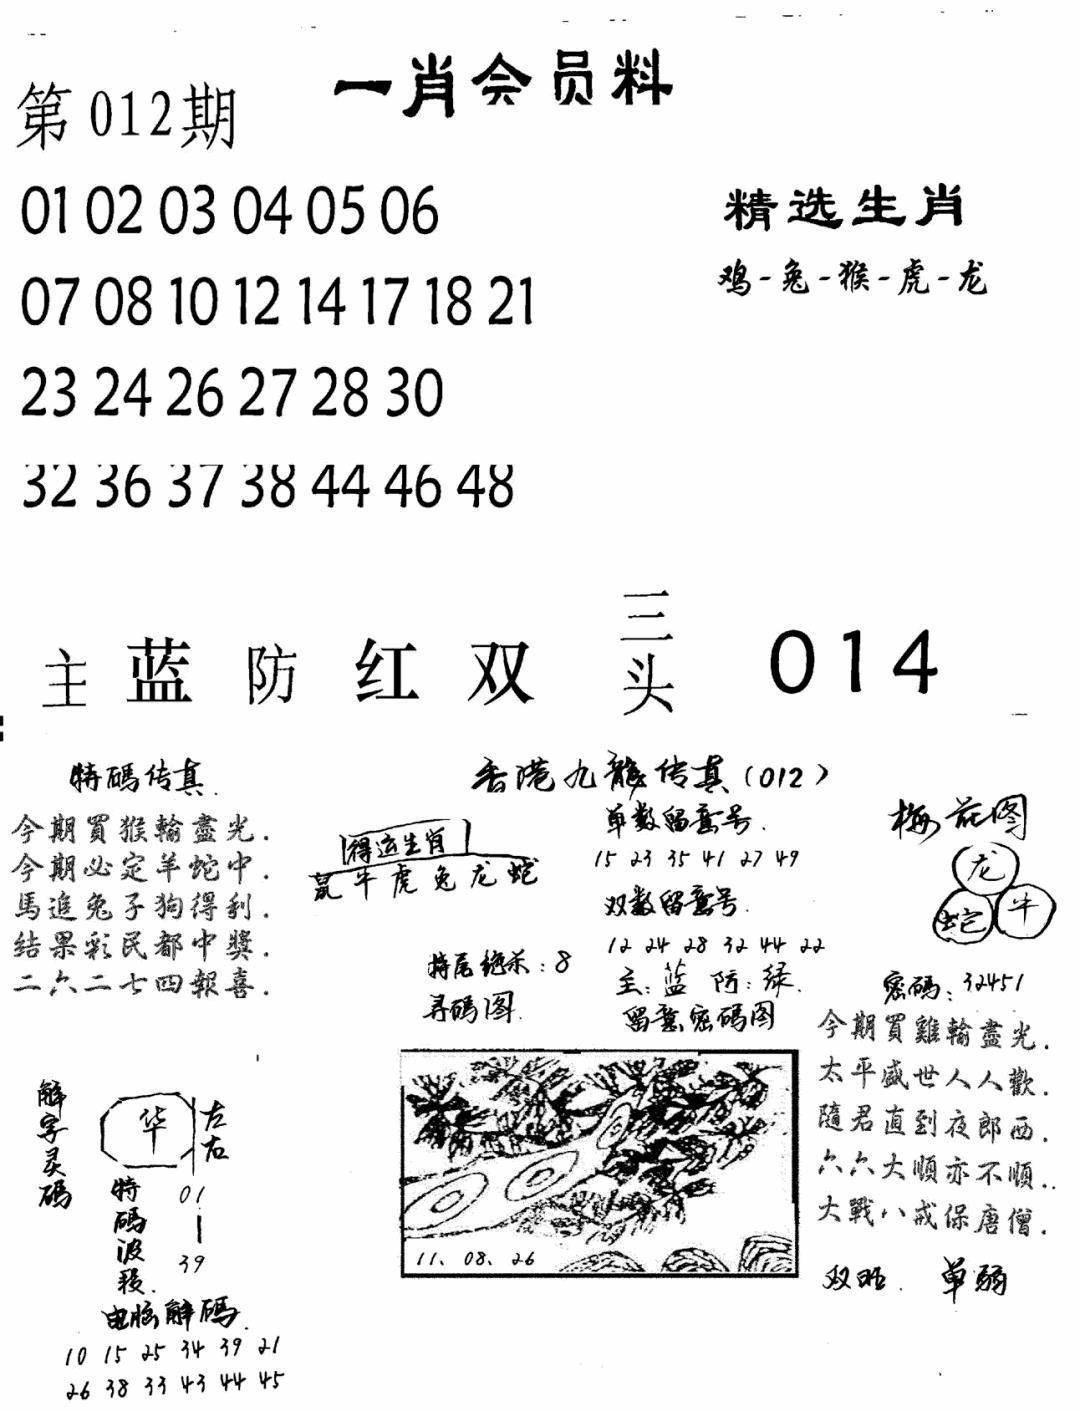 一肖会员料
第012期
01 02 03 04 05 06
07 08 10 12 14 17 18 21
23 24 26 27 28 30
32 36 37 38 44 46 48
精选生肖
鸡-兔-猴-虎-龙
主 蓝 防 红 双 三头 014
特碼传真.
今期買猴輸盡光.
今期必定羊蛇中.
馬追兔子狗得利.
结果彩民都中獎.
二六二七四報喜.
香港九龍传真(012)
得运生肖
鼠牛虎兔龙蛇
特尾绝杀:8
寻码图.
单数留意号.
15 23 35 41 27 49
双数留意号.
12 24 28 32 44 22
主:蓝 防:绿.
留意密码图
11、08、26
梅花图
龙
蛇 牛
密碼:32451
今期買雞輸盡光.
太平盛世人人歡.
隨君直到夜郎西.
六六大順亦不順..
大戰八戒保唐僧.
双旺. 单弱
解字灵碼
华
左右
特碼波段.
01
|
39
电脑解碼.
10 15 25 34 39 21
26 38 33 43 44 45